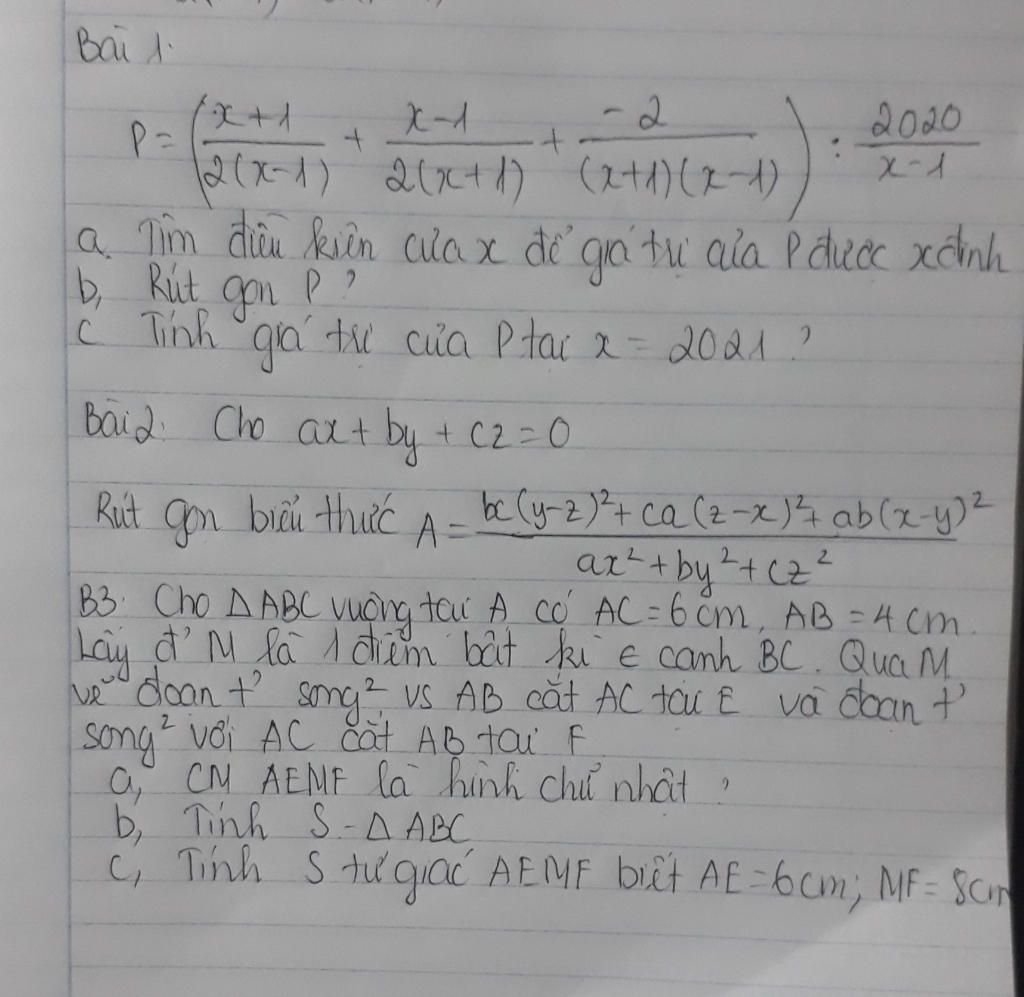 Bài 1.
P = ( (x+1)/(2(x-1)) + (x-1)/(2(x+1)) + (-2)/((x+1)(x-1)) ) : 2020/(x-1)
a. Tìm điều kiện của x để giá trị của P được xđịnh
b, Rút gọn P ?
c Tính giá trị của P tại x = 2021 ?
Bài 2. Cho ax + by + cz = 0
Rút gọn biểu thức A = (bc(y-z)² + ca(z-x)² + ab(x-y)²)/(ax² + by² + cz²)
B3. Cho ΔABC vuông tại A có AC = 6 cm, AB = 4 cm.
Lấy đ' M là 1 điểm bất kì ∈ cạnh BC. Qua M
vẽ đoạn t' song², vs AB cắt AC tại E và đoạn t'
song² với AC cắt AB tại F
a, CM AEMF là hình chữ nhật ?
b, Tính S - Δ ABC
c, Tính S tứ giác AEMF biết AE = 6cm; MF = 8cm